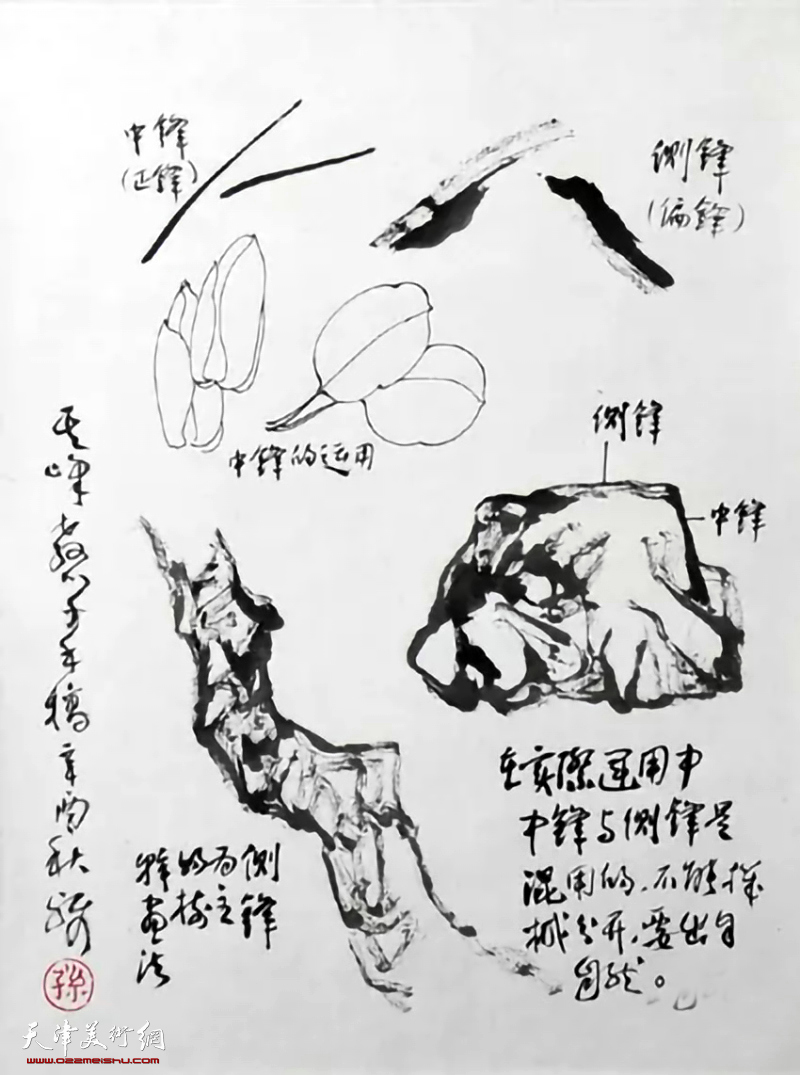 中锋
(正锋)
侧锋
(偏锋)
中锋的运用
侧锋
中锋
其峰教学手稿 辛酉秋
孫
侧锋
为主
的树
幹画法
在实際運用中
中锋与侧锋是
混用的,不能機
械分开,要出自
自然。
天津美術網
www.022meishu.com